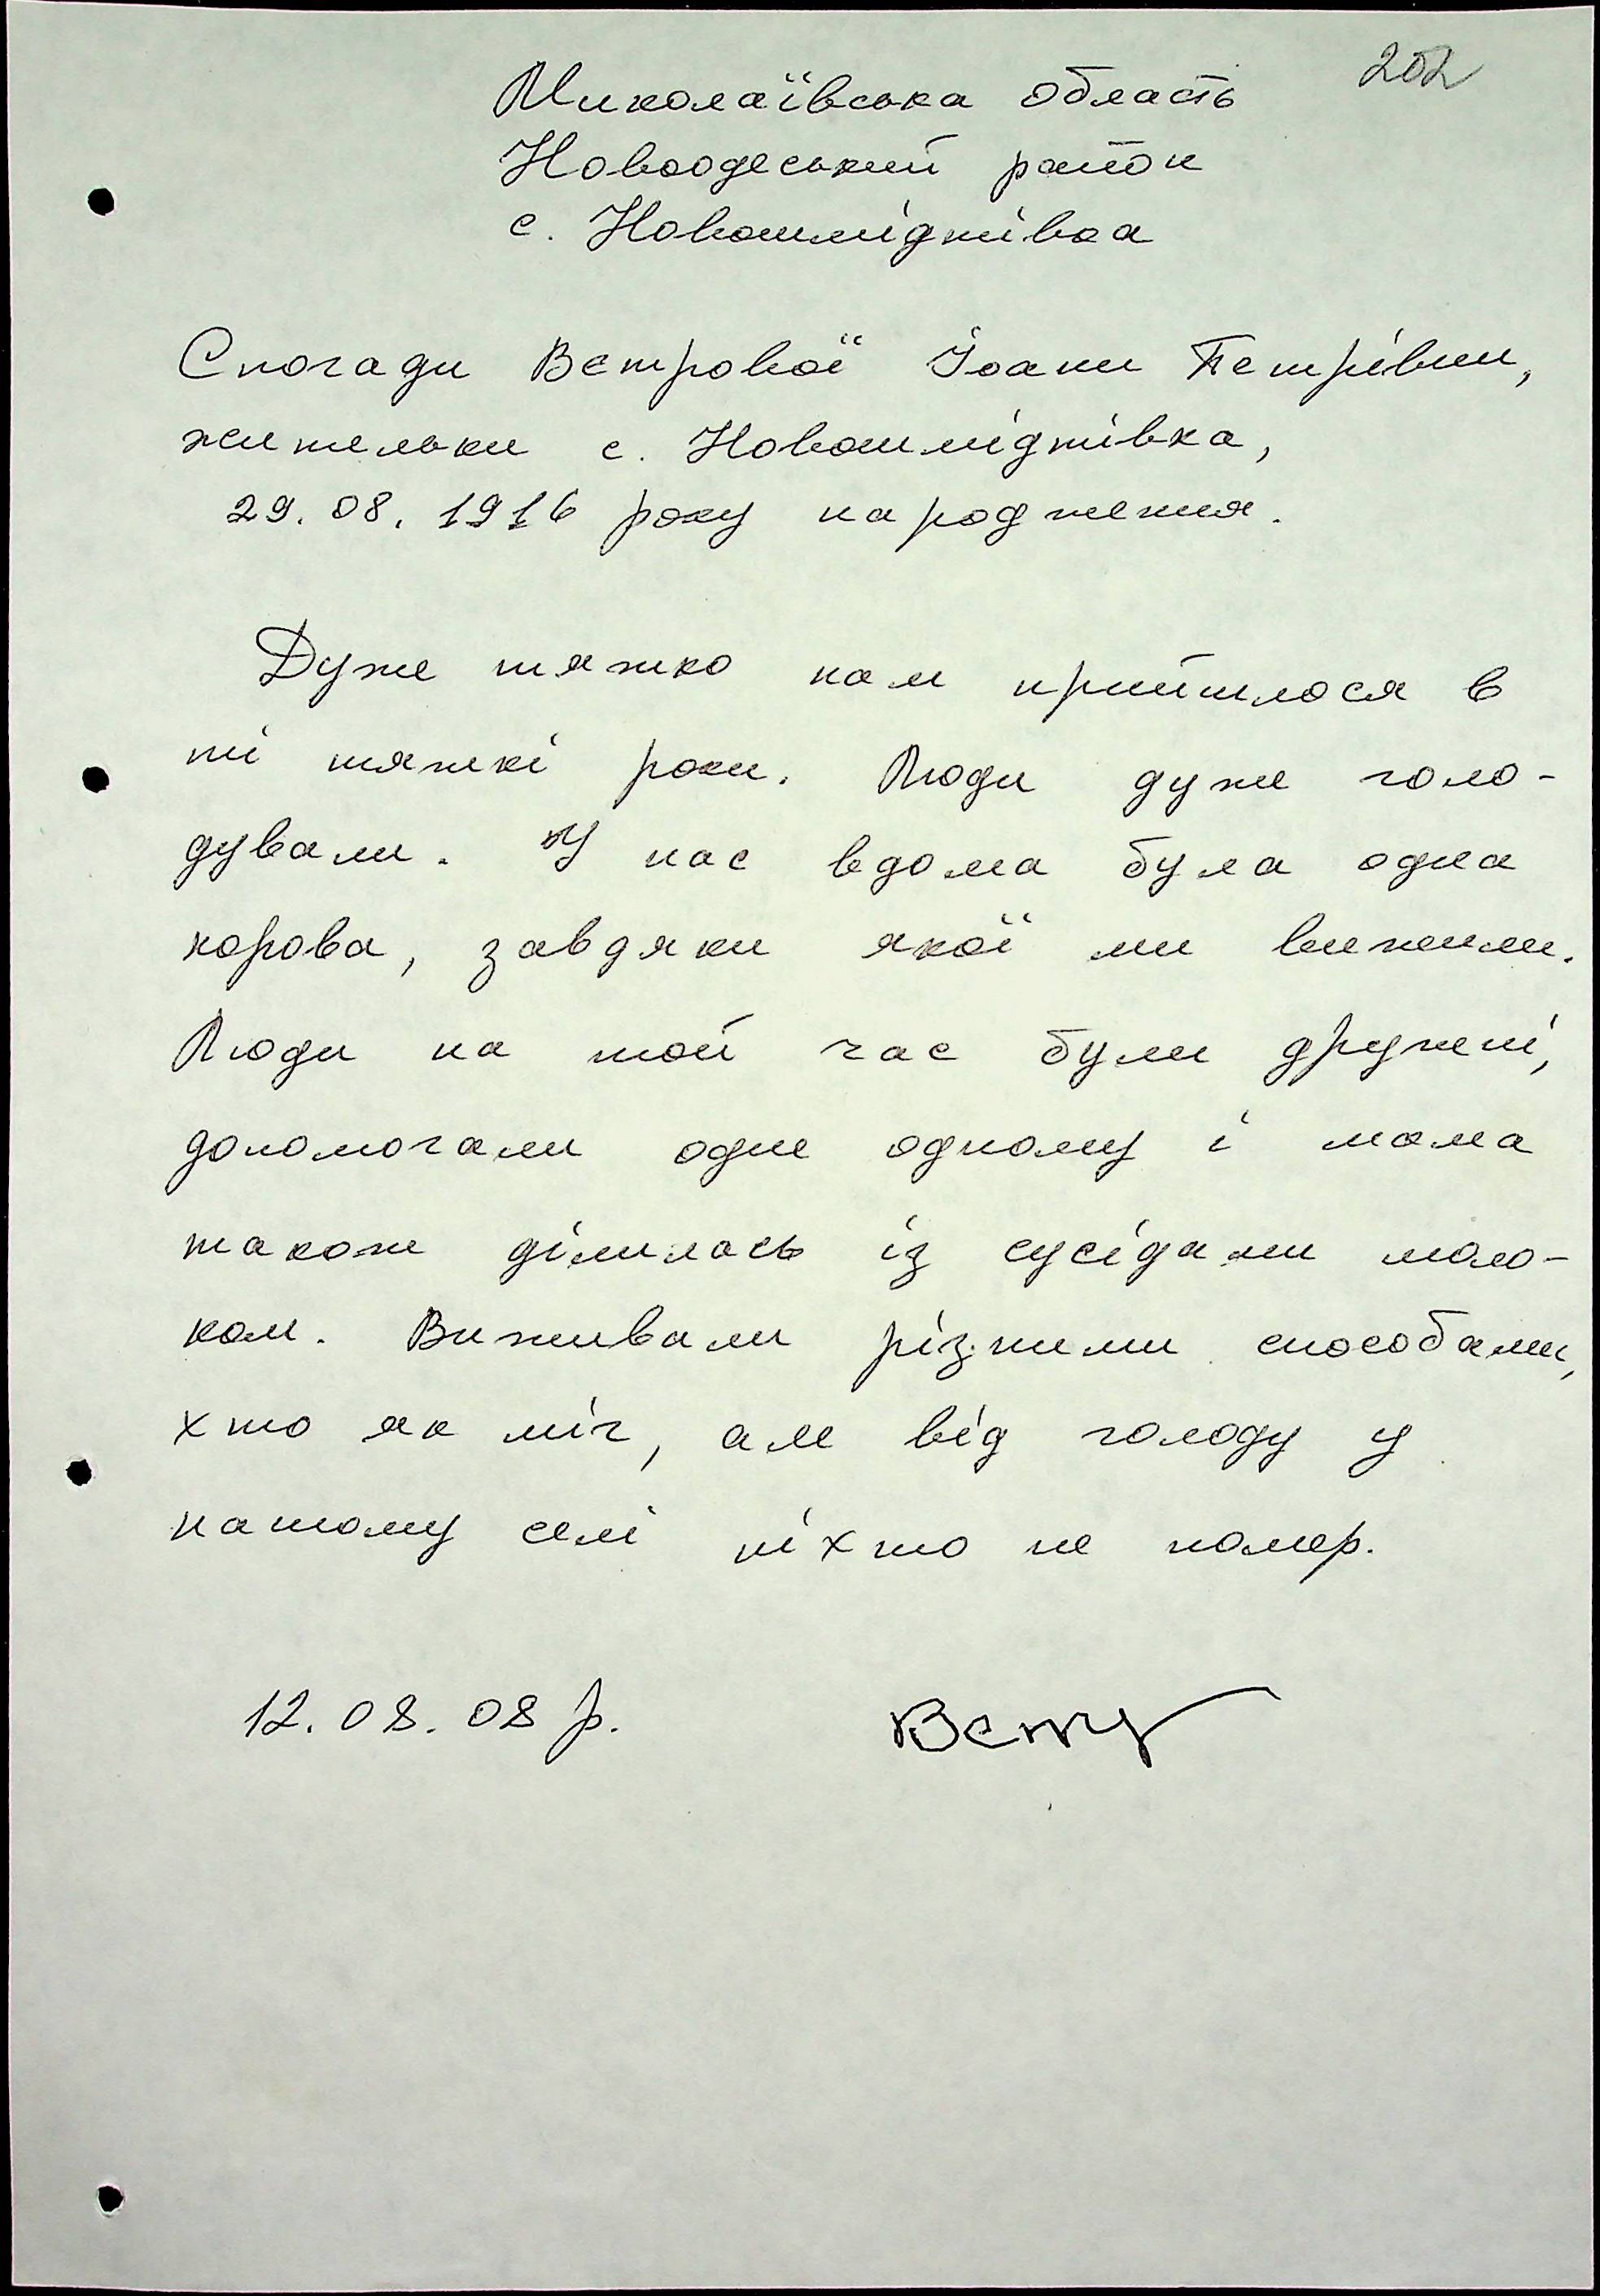 202
Миколаївська область
Новоодеський район
с. Новошмідтівка
Спогади Вєтрової Іоани Петрівни,
жительки с. Новошмідтівка,
29.08.1916 року народження.
Дуже тяжко нам прийшлося в
ті тяжкі роки. Люди дуже голо-
дували. У нас вдома була одна
корова, завдяки якої ми вижили.
Люди на той час були дружні,
допомогали одне одному і мама
також ділилась із сусідами моло-
ком. Виживали різними способами,
хто як міг, але від голоду у
нашому селі ніхто не помер.
12.08.08 р.